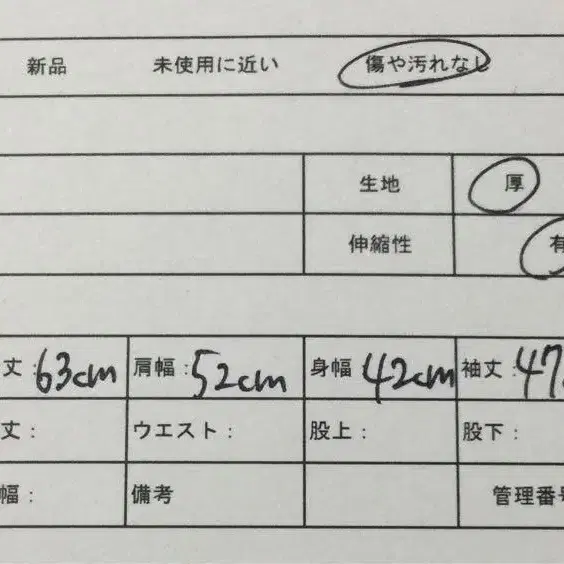 新品 未使用に近い 傷や汚れなし
生地 厚
伸縮性 有
丈:63cm 肩幅:52cm 身幅 42cm 袖丈:47
丈: ウエスト: 股上: 股下:
幅: 備考 管理番号